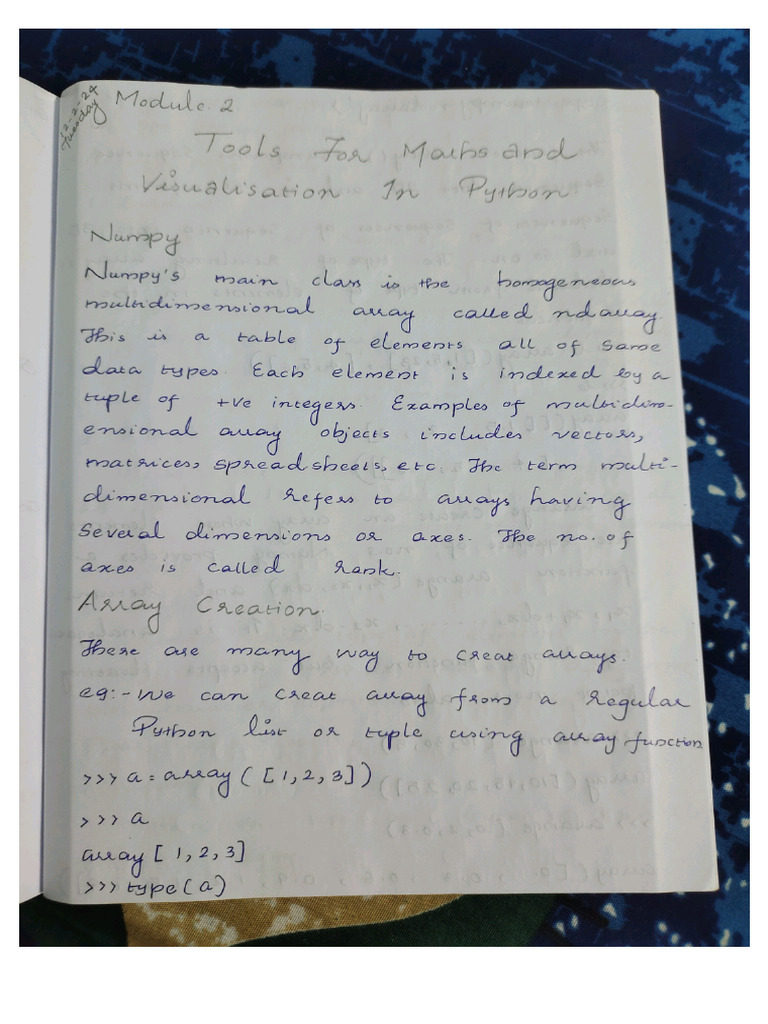 12-2-24
Tuesday
Module 2
Tools For Maths and
Visualisation In Python
Numpy
Numpy's main class is the homogeneous
multidimensional array called ndarray.
This is a table of elements all of same
data types. Each element is indexed by a
tuple of +ve integers. Examples of multidim-
ensional array objects includes vectors,
matrices, spreadsheets, etc. The term multi-
dimensional refers to arrays having
several dimensions or axes. The no. of
axes is called rank.
Array Creation.
There are many way to creat arrays.
eg:- We can creat array from a regular
Python list or tuple using array function
>>> a = array ( [ 1, 2, 3 ] )
>>> a
array [ 1, 2, 3 ]
>>> type ( a )